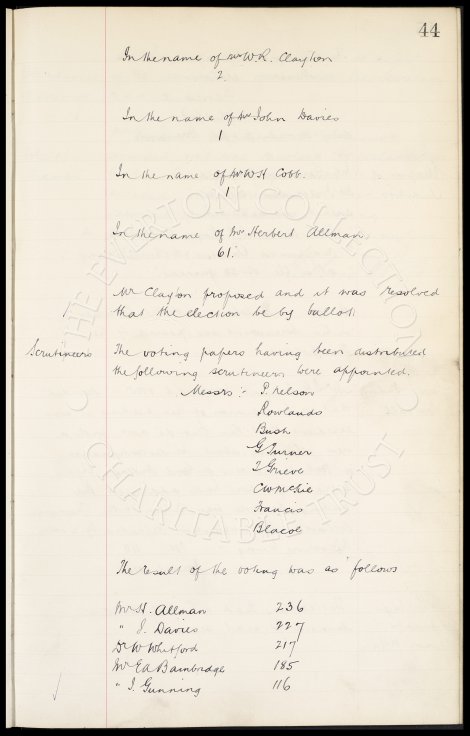 44
In the name of Mr W.R. Clayton
2.
In the name of Mr John Davies
1
In the name of Mr W H Cobb.
1
In the name of Mr Herbert Allman
61.
Mr Clayton proposed and it was resolved
that the election be by ballot.
Scrutineers
The voting papers having been distributed
the following scrutineers were appointed.
Messrs :- P. Nelson
Rowlands
Bush
G Turner
T Grieve
C W McKie
Francis
Blacoe
The result of the voting was as follows
Mr H. Allman 236
" J. Davies 227
Dr W Whitford 217
Mr E A Bainbridge 185
" J. Gunning 116
THE EVERTON COLLECTION
CHARITABLE TRUST